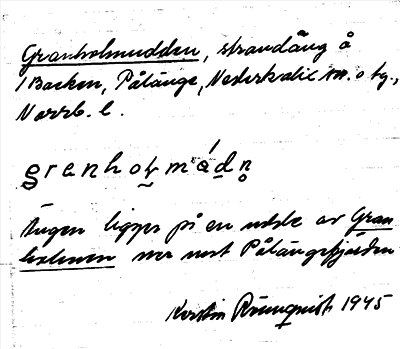 Granholmudden, strandäng å
1 Backen, Pålänge, Nederkalix sn. o tg.,
Norrb. l.
grenhoḷmádn̥
Ängen ligger på en udde av Gran
holmen mer mot Pålängefjärden
Kerstin Rönnquist 1945